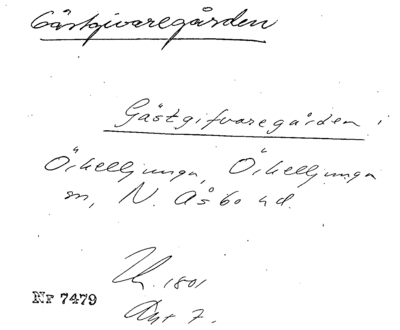 Gästgivaregården
Gästgifvaregården i
Örkelljunga, Örkelljunga
sn, N. Åsbo hd.
1801
Nr 7479
7.